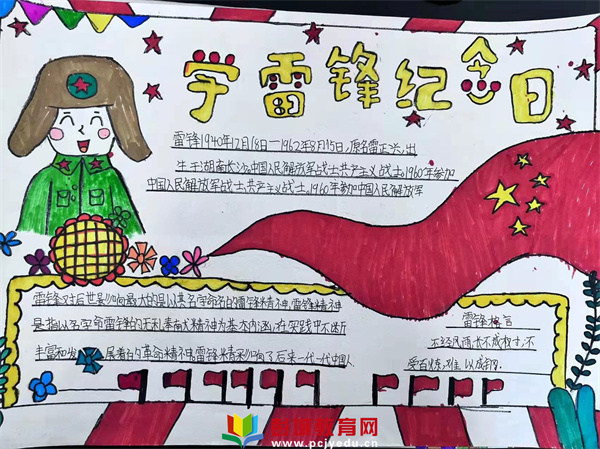 学雷锋纪念日
雷锋1940年12月18日—1962年8月15日,原名雷正兴,出
生于湖南长沙,中国人民解放军战士共产主义战士,1960年参加
中国人民解放军战士共产主义战士,1960年参加中国人民解放军
雷锋对后世影响最大的是以其名字命名的雷锋精神,雷锋精神
是指以名字命雷锋的无私奉献精神为基本内涵,在实践中不断
丰富和发 展着的革命精神,雷锋精神影响了后来一代一代中国人
雷锋格言
不经风雨长不成树,不
受百炼,难以成钢.
教育网
www.pcjyedu.cn